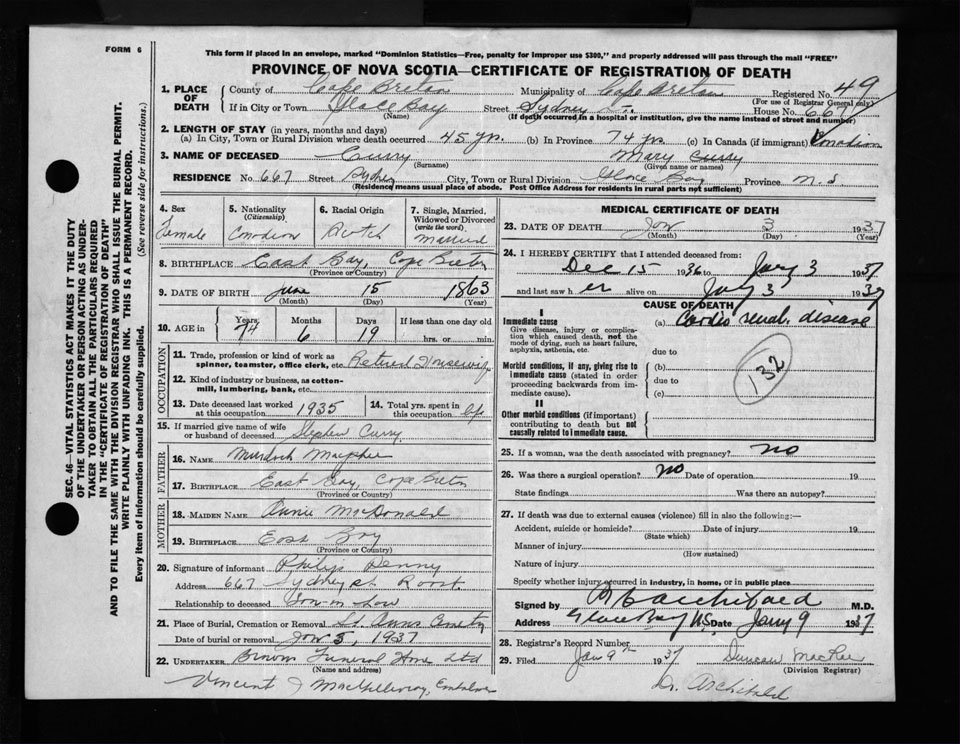 FORM 6
This form if placed in an envelope, marked "Dominion Statistics—Free, penalty for improper use $300," and properly addressed will pass through the mail "FREE"
PROVINCE OF NOVA SCOTIA—CERTIFICATE OF REGISTRATION OF DEATH
49
1. PLACE OF DEATH
County of Cape Breton Municipality of Cape Breton Registered No.
(For use of Registrar General only)
If in City or Town Glace Bay Street Sydney St. House No. 667
(Name) (If death occurred in a hospital or institution, give the name instead of street and number)
2. LENGTH OF STAY (in years, months and days)
(a) In City, Town or Rural Division where death occurred 45 yrs. (b) In Province 74 yrs (c) In Canada (if immigrant) Canadian
3. NAME OF DECEASED Curry Mary Curry
(Surname) (Given name or names)
RESIDENCE No. 667 Street Sydney City, Town or Rural Division Glace Bay Province N. S.
(Residence means usual place of abode. Post Office Address for residents in rural parts not sufficient)
SEC. 46—VITAL STATISTICS ACT MAKES IT THE DUTY
OF THE UNDERTAKER OR PERSON ACTING AS UNDER-
TAKER TO OBTAIN ALL THE PARTICULARS REQUIRED
IN THE "CERTIFICATE OF REGISTRATION OF DEATH"
AND TO FILE THE SAME WITH THE DIVISION REGISTRAR WHO SHALL ISSUE THE BURIAL PERMIT.
WRITE PLAINLY WITH UNFADING INK. THIS IS A PERMANENT RECORD.
Every item of information should be carefully supplied. (See reverse side for instructions.)
4. Sex 5. Nationality (Citizenship) 6. Racial Origin 7. Single, Married, Widowed or Divorced (write the word)
Female Canadian Scotch Married
8. BIRTHPLACE East Bay, Cape Breton
(Province or Country)
9. DATE OF BIRTH June 15 1863
(Month) (Day) (Year)
10. AGE in Years Months Days If less than one day old
74 6 19 hrs. or min.
OCCUPATION
11. Trade, profession or kind of work as spinner, teamster, office clerk, etc. Retired Housewife
12. Kind of industry or business, as cotton-mill, lumbering, bank, etc.
13. Date deceased last worked at this occupation 1935 14. Total yrs. spent in this occupation life
15. If married give name of wife or husband of deceased Stephen Curry
FATHER
16. NAME Murdock Macphee
17. BIRTHPLACE East Bay, Cape Breton
(Province or Country)
MOTHER
18. MAIDEN NAME Annie MacDonald
19. BIRTHPLACE East Bay
(Province or Country)
20. Signature of informant Philip Penny
Address 667 Sydney St.
Relationship to deceased Son-in Law
21. Place of Burial, Cremation or Removal St. Anns Cemetery
Date of burial or removal Jan 5, 1937
22. UNDERTAKER Browns Funeral Home Ltd
(Name and address)
Vincent J MacGillivray, Embalmer
MEDICAL CERTIFICATE OF DEATH
23. DATE OF DEATH Jan 3 1937
(Month) (Day) (Year)
24. I HEREBY CERTIFY that I attended deceased from:
Dec 15 1936 to Jany 3 1937
and last saw h er alive on Jany 3 1937
CAUSE OF DEATH
I
Immediate cause
Give disease, injury or complication which caused death, not the mode of dying, such as heart failure, asphyxia, asthenia, etc.
(a) Cardio renal disease
due to
Morbid conditions, if any, giving rise to immediate cause (stated in order proceeding backwards from immediate cause).
(b)
due to
(c)
132
II
Other morbid conditions (if important) contributing to death but not causally related to immediate cause.
25. If a woman, was the death associated with pregnancy? no
26. Was there a surgical operation? no Date of operation 19
State findings Was there an autopsy?
27. If death was due to external causes (violence) fill in also the following:—
Accident, suicide or homicide? Date of injury 19
(State which)
Manner of injury
(How sustained)
Nature of injury
Specify whether injury occurred in industry, in home, or in public place
Signed by Archibald M.D.
Address Glace Bay N.S. Date Jany 9 1937
28. Registrar's Record Number
29. Filed Jan 9th 1937 Duncan MacRae
(Division Registrar)
Dr. Archibald